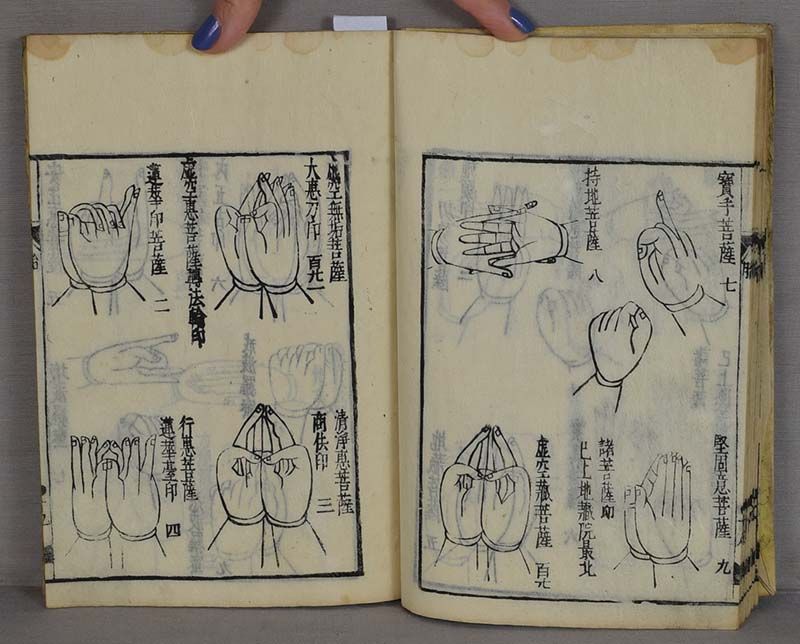 寳手菩薩 七
持地菩薩 八
堅固意菩薩 九
諸菩薩印
已上地藏院最北
虚空藏菩薩 百九
虚空無垢菩薩
大惠刀印 百九一
虚空惠菩薩轉法輪印
蓮華印菩薩 二
清浄惠菩薩
商佉印 三
行惠菩薩
蓮華臺印 四